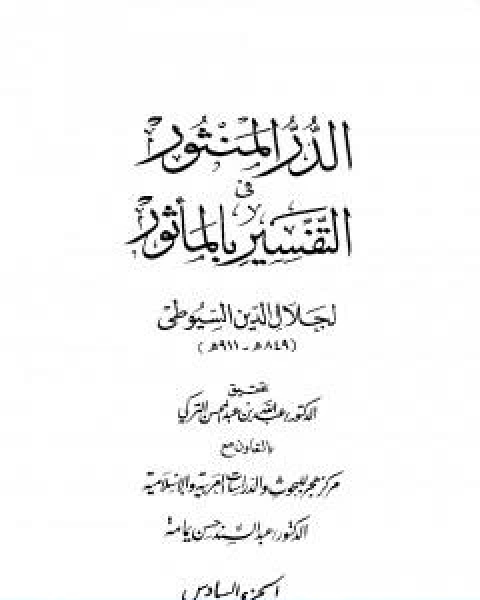 الدُّرُّ المَنْثُور
في
التَّفْسِيرِ بِالمَأْثُور
لجلال الدين السيوطي
(٨٤٩هـ - ٩١١هـ)
تحقيق
الدكتور/عبد الله بن عبد المحسن التركي
بالتعاون مع
مركز هجر للبحوث والدراسات العربية والإسلامية
الدكتور/عبد السند حسن يمامة
الجزء السادس